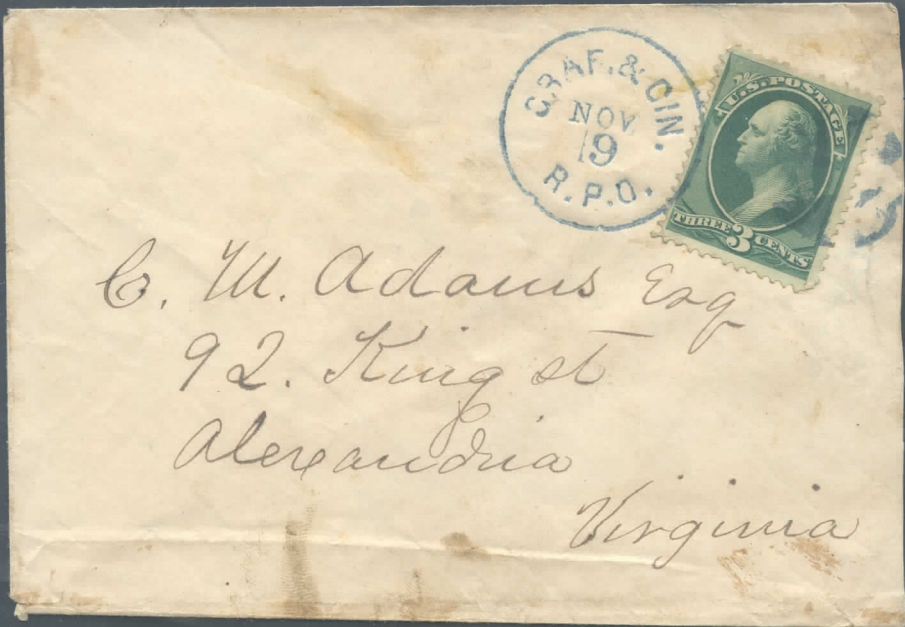 GRAF. & CIN.
NOV
19
R.P.O.
U.S. POSTAGE
THREE 3 CENTS
C. M. Adams Esq
92. King st
Alexandria
Virginia